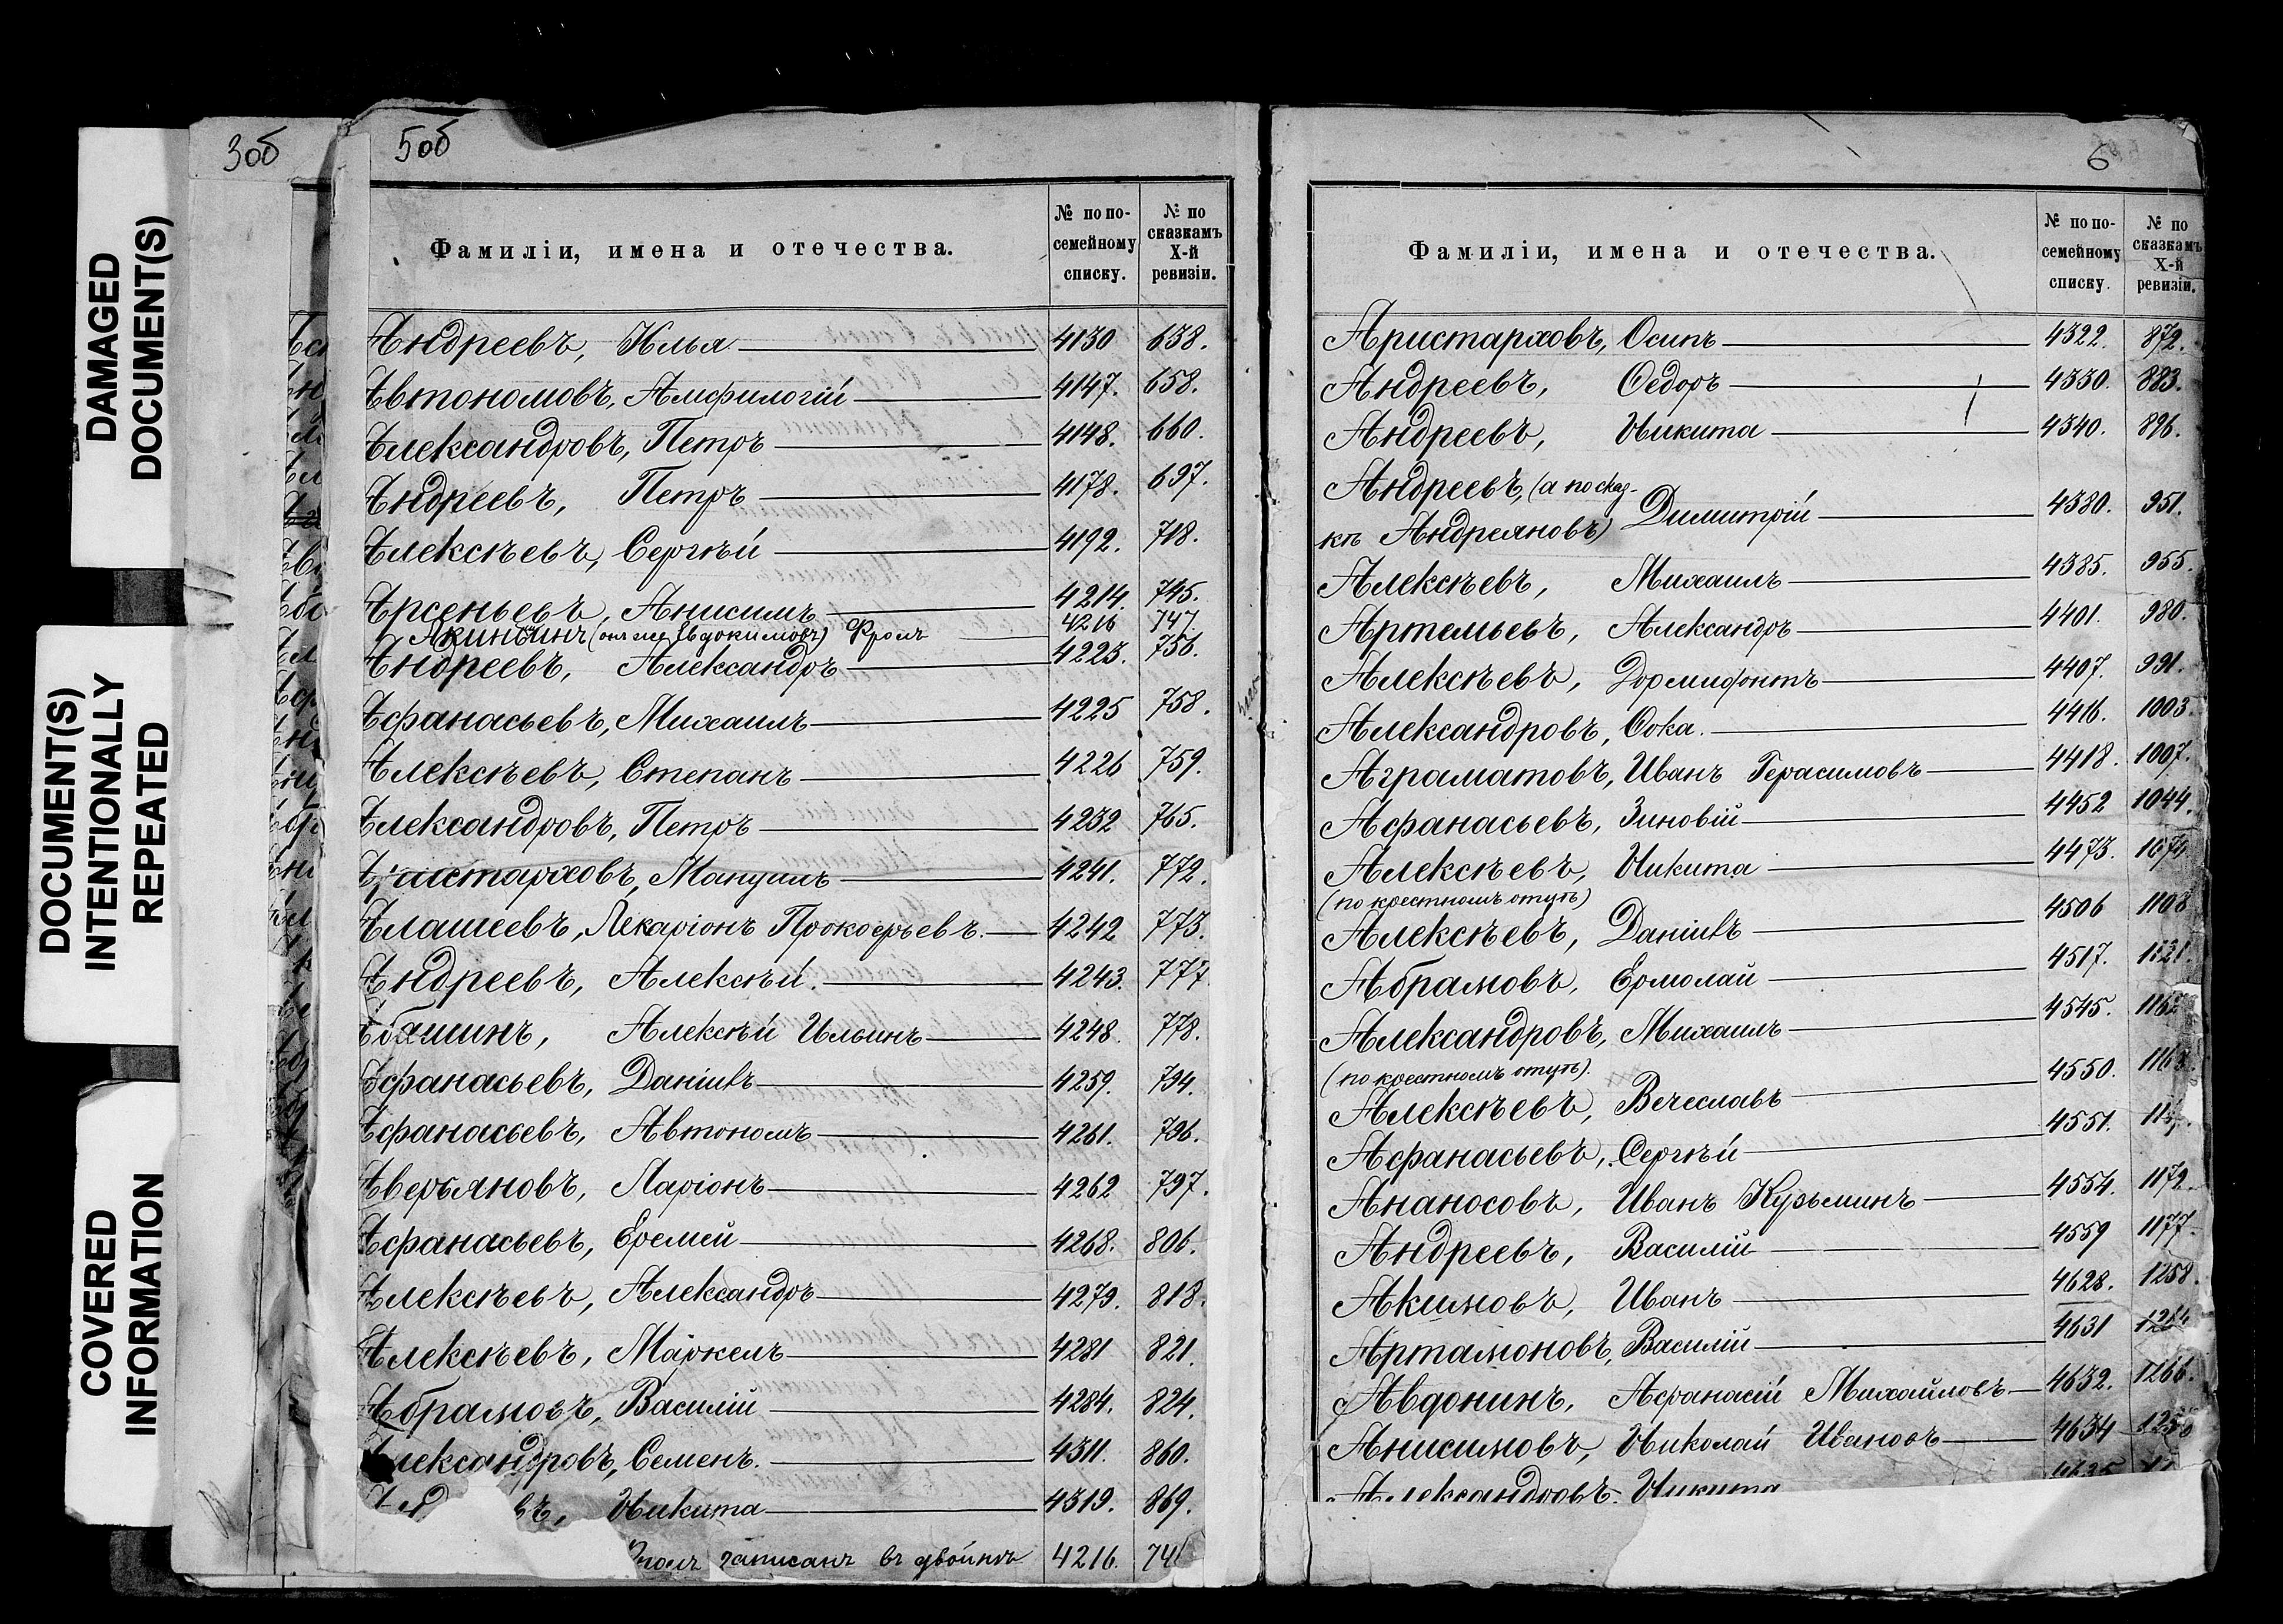 DAMAGED
DOCUMENT(S)
DOCUMENT(S)
INTENTIONALLY
REPEATED
COVERED
INFORMATION
3об
5об
Фамиліи, имена и отечества. № по по-семейному списку. № по сказкамъ X-й ревизіи.
Андреевъ, Илья 4130 638.
Автономовъ, Амфилогій 4147. 658.
Александровъ, Петръ 4148. 660.
Андреевъ, Петръ 4178. 697.
Алексѣевъ, Сергѣй 4192. 718.
Арсеньевъ, Анисимъ 4214. 745.
Акиньшинъ (онъ же Евдокимовъ) Фролъ 4216 747.
Андреевъ, Александръ 4223. 756.
Афанасьевъ, Михаилъ 4225 758.
Алексѣевъ, Степанъ 4226 759.
Александровъ, Петръ 4232 765.
Аристарховъ, Мануилъ 4241. 772.
Алашеевъ, Лекаріонъ Прокофьевъ. 4242 773.
Андреевъ, Алексѣй. 4243. 777
Абашинъ, Алексѣй Ильинъ 4248 778.
Афанасьевъ, Даніилъ 4259. 794.
Афанасьевъ, Автономъ 4261. 796.
Аверьяновъ, Ларіонъ 4262 797.
Афанасьевъ, Еремей 4268. 806.
Алексѣевъ, Александръ 4279. 818.
Алексѣевъ, Маркелъ 4281 821.
Абрамовъ, Василій 4284. 824.
Александровъ, Семенъ. 4311. 860.
въ, Никита 4319. 869.
Фролъ записанъ въ двойнѣ 4216. 74
6
Фамиліи, имена и отечества. № по по-семейному списку. № по сказкамъ X-й ревизіи.
Аристарховъ, Осипъ 4322. 872.
Андреевъ, Ѳедоръ 4330. 883.
Андреевъ, Никита 4340. 896.
Андреевъ, (а по сказ-
кѣ Андреяновъ) Димитрій 4380. 951.
Алексѣевъ, Михаилъ 4385. 955.
Артемьевъ, Александръ 4401. 980.
Алексѣевъ, Дормифонтъ 4407. 991.
Александровъ, Ѳока. 4416. 1003.
Аграматовъ, Иванъ Герасимовъ 4418. 1007.
Афанасьевъ, Зиновій 4452 1044.
Алексѣевъ, Никита 4473.
(по крестномъ отцѣ)
Алексѣевъ, Даніилъ 4506 1108
Абрамовъ, Ермолай 4517. 1121.
Александровъ, Михаилъ 4545.
(по крестномъ отцѣ).
Алексѣевъ, Вечеславъ 4550. 1168.
Афанасьевъ, Сергѣй 4551.
Ананосовъ, Иванъ Кузьминъ 4554. 1172
Андреевъ, Василій 4559 1177
Акимовъ, Иванъ 4628. 1258.
Артамоновъ, Василій 4631
Авдонинъ, Афанасій Михайловъ 4632. 1266.
Анисимовъ, Николай Ивановъ 4634
Александровъ. Никита 4635